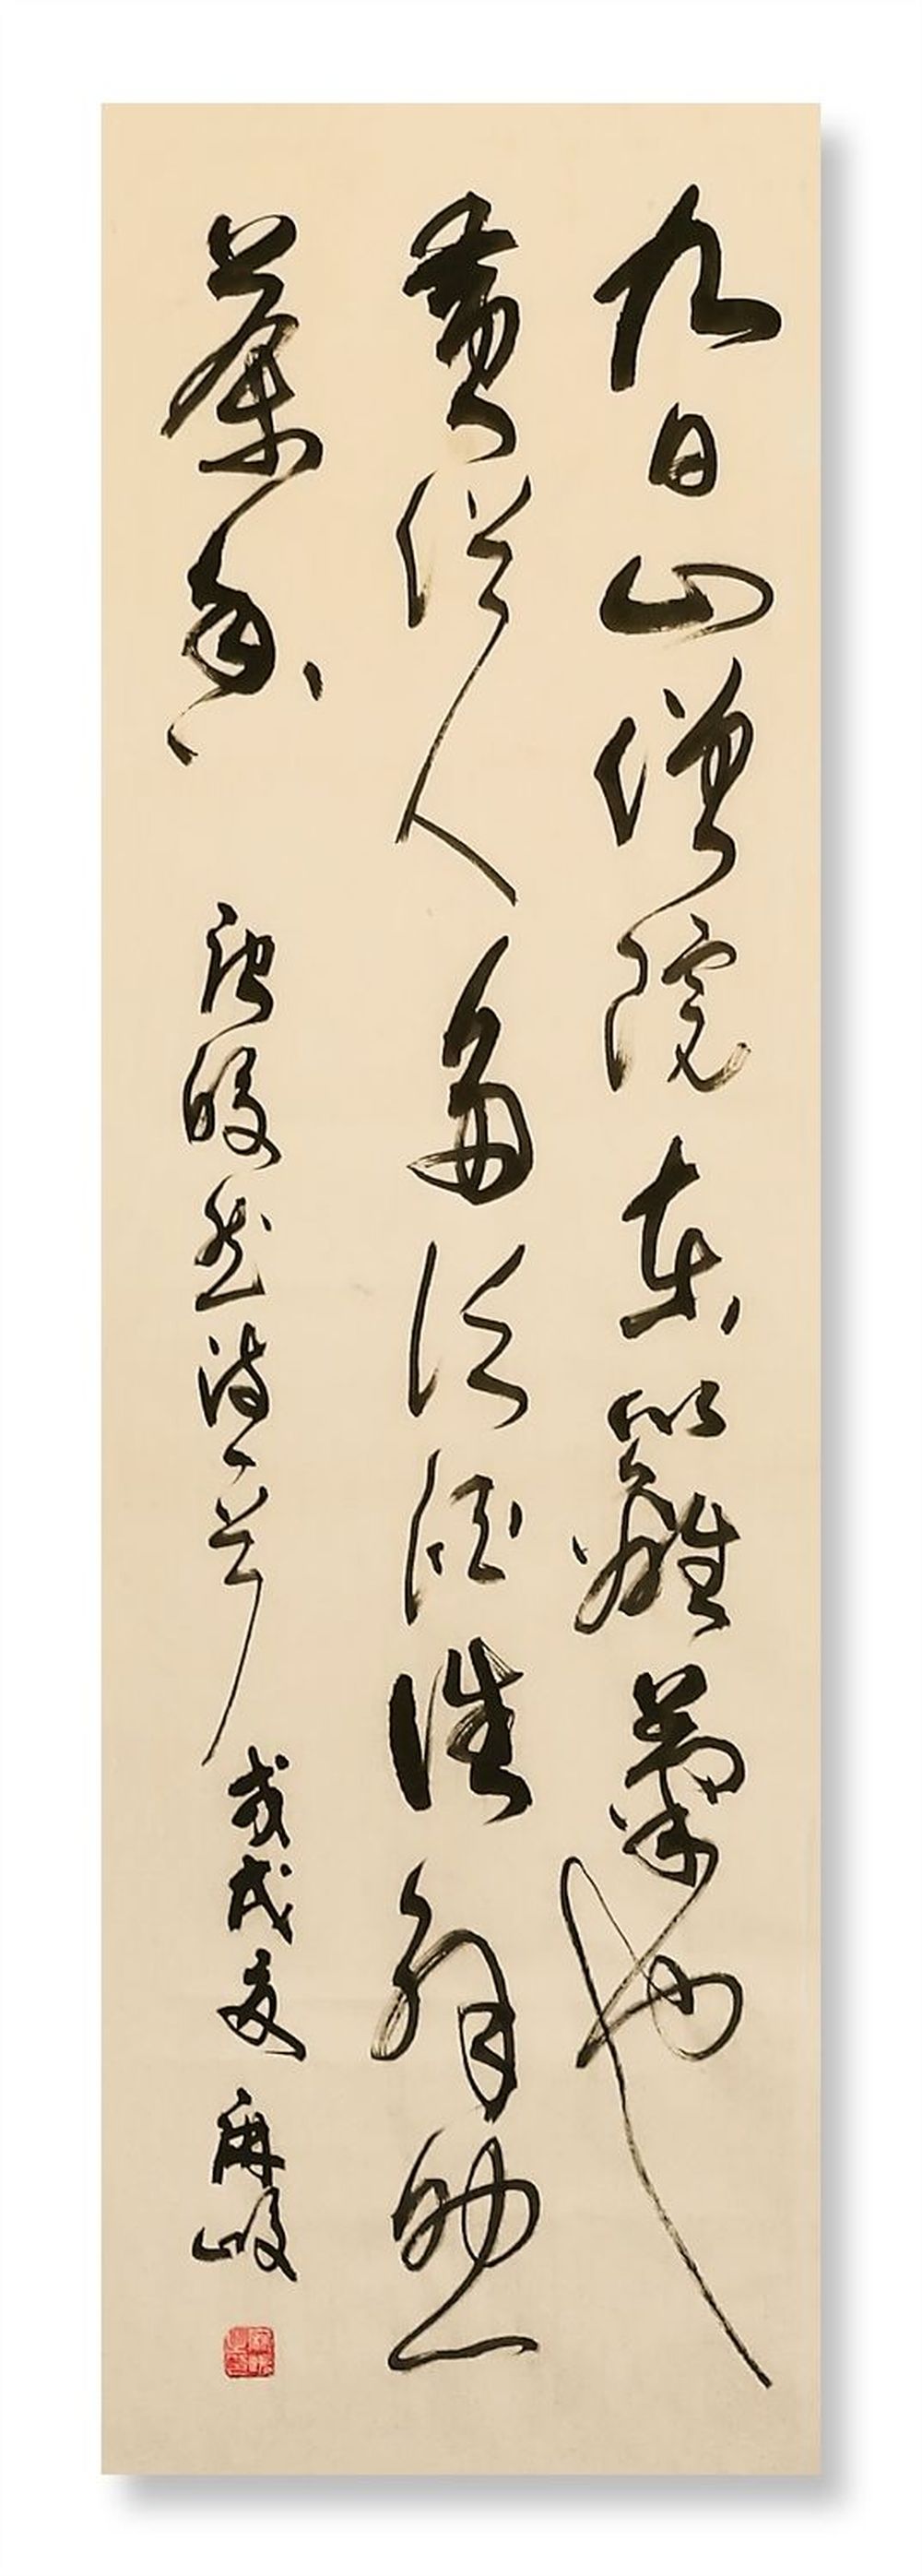 九日山僧院东篱菊也
黄俗人多泛酒谁解助
茶香 唐皎然诗一首 戊戌夏 麻峻